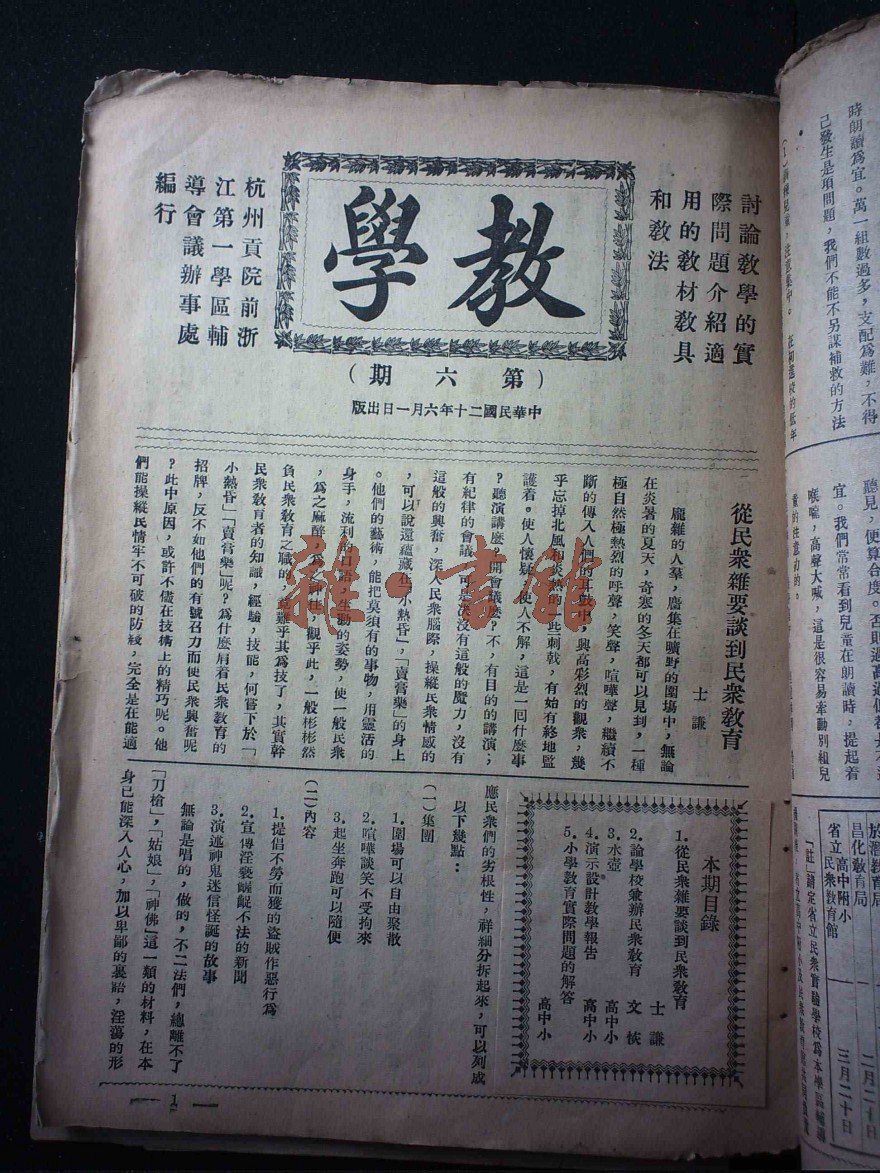 討論教學的實
際問題介紹適
用的教材教具
和教法
教學
（第六期）
中華民國二十年六月一日出版
杭州貢院前浙
江第一學區輔
導會議辦事處
編行
從民衆雜耍談到民衆教育
士謙
龐雜的人羣，麕集在曠野的圍場中，無論
在炎暑的夏天，奇寒的冬天都可以見到，一種
極自然極熱烈的呼聲，笑聲，喧嘩聲，繼續不
斷的傳入人們的耳鼓中，興高彩烈的觀衆，幾
乎忘掉北風和炎熱的一些刺戟，有始有終地監
護着。使人懷疑，使人不解，這是一回什麽事
？聽演講麽？開會議麽？不，有目的的講演；
有紀律的會議，可是決沒有這般的魔力，沒有
這般的興奮，深入民衆腦際，操縱民衆情感的
，可以說還蘊藏在「小熱昏」，「賣膏藥」的身上
。他們的藝術，能把莫須有的事物，用靈活的
身手，流利的口語，生動的姿勢，使一般民衆
，爲之麻醉，爲之神往，觀乎此，一般彬彬然
負民衆敎育之職的，竟難乎其爲技了，其實幹
民衆敎育者的知識，經驗，技能，何嘗下於「
小熱昏」「賣膏藥」呢？爲什麽肩着民衆敎育的
招牌，反不如他們的有號召力而使民衆興奮呢
？此中原因，或許不儘在技術上的精巧呢。他
們能操縱民情牢不可破的防綫，完全是在能適
本期目錄
1.從民衆雜耍談到民衆敎育　士謙
2.論學校兼辦民衆敎育　文恢
3.水壺　高中小
4.演示設計敎學報告　高中小
5.小學敎育實際問題的解答　高中小
應民衆們的劣根性，祥細分拆起來，可以列成
以下幾點：
(一)集團
1.圍場可以自由聚散
2.喧嘩談笑不受拘來
3.起坐奔跑可以隨便
(二)內容
1.提倡不勞而獲的盜賊作惡行爲
2.宣傳淫褻齷齪不法的新聞
3.演述神鬼迷信怪誕的故事
無論是唱的，做的，不二法們，總離不了
「刀槍」，「姑娘」，「神佛」這一類的材料，在本
身已能深入人心，加以卑鄙的裏語，淫蕩的形
1
時朗讀爲宜。萬一組數過多，支配爲難，不得
己發生是項問題，我們不能不另謀補救的方法
宜。我們常常看到兒童在朗讀時，提起着
喉嚨，高聲大喊，這是很容易牽動別組兒
童的注意力的。
於潛敎育局
昌化敎育局
省立高中附小
省立民衆敎育館
二月二十日
三月二十日
雜·書館